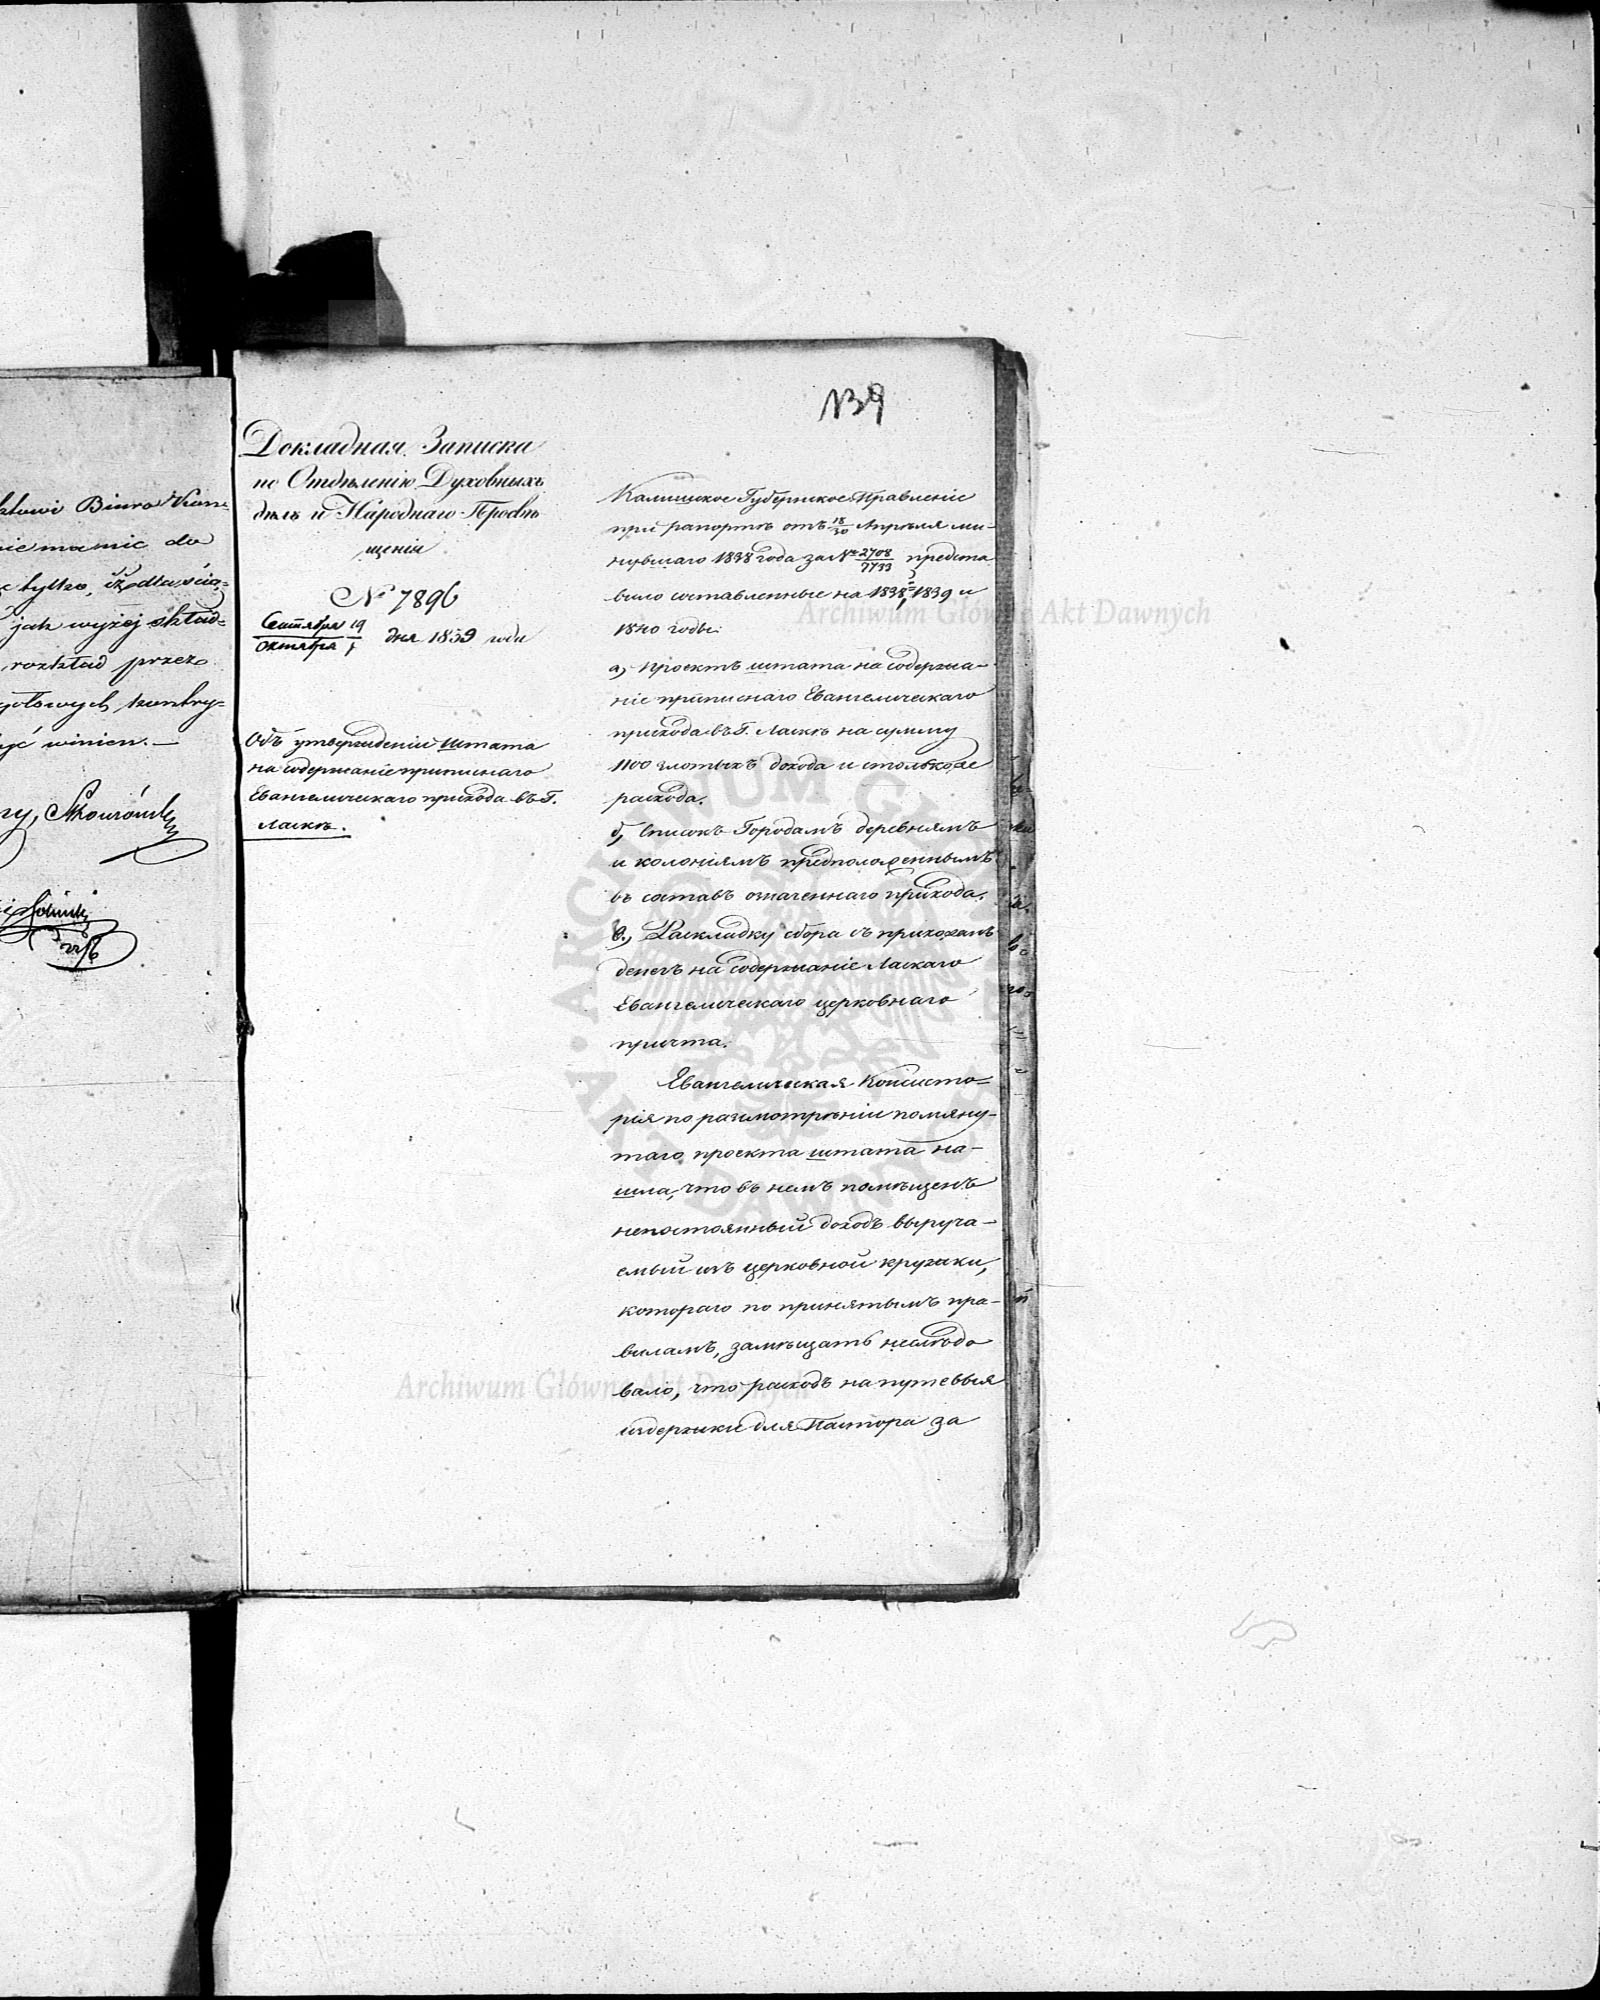 ktowi Biuro Kom=
nie mamic do
tylko, iż dla scią=
jak wyżej skład=
rozkład przez
kontry=
być winien. —
139
Докладная Записка
по Отдѣленію Духовныхъ
дѣлъ и Народнаго Просвѣ
щенія
№ 7896
Сентября 19
Октября 1
дня 1839 года
Объ утвержденіи Штата
на содержаніе приписнаго
Евангелическаго прихода въ Г.
Ласкѣ.
Калишское Губернское Правленіе
при рапортѣ отъ 18/30 Апрѣля ми-
нувшаго 1838 года за № 2708/7733 предста
вило составленные на 1838, 1839 и
1840 годы:
а, проектъ штата на содержа-
ніе приписнаго Евангелическаго
прихода въ Г. Ласкѣ на сумму
1100 злотыхъ дохода и столько же
расхода.
б, Списокъ Городамъ деревнямъ
и колоніямъ предположеннымъ
въ составъ означеннаго прихода.
в, Раскладку сбора съ прихожанъ
денегъ на содержаніе Ласкаго
Евангелическаго церковнаго
причта.
Евангелическая Консисто=
рія по разсмотрѣніи помяну-
таго проекта штата на-
шла, что въ немъ помѣщенъ
непостоянный доходъ выруча-
емый изъ церковной кружки,
котораго по принятымъ пра-
виламъ, замѣщать неслѣдо
вало, что расходъ на путевыя
издержки для Пастора за
Archiwum Główne Akt Dawnych
Archiwum Główne Akt Dawnych
ARCHIWUM GŁÓWNE AKT DAWNYCH